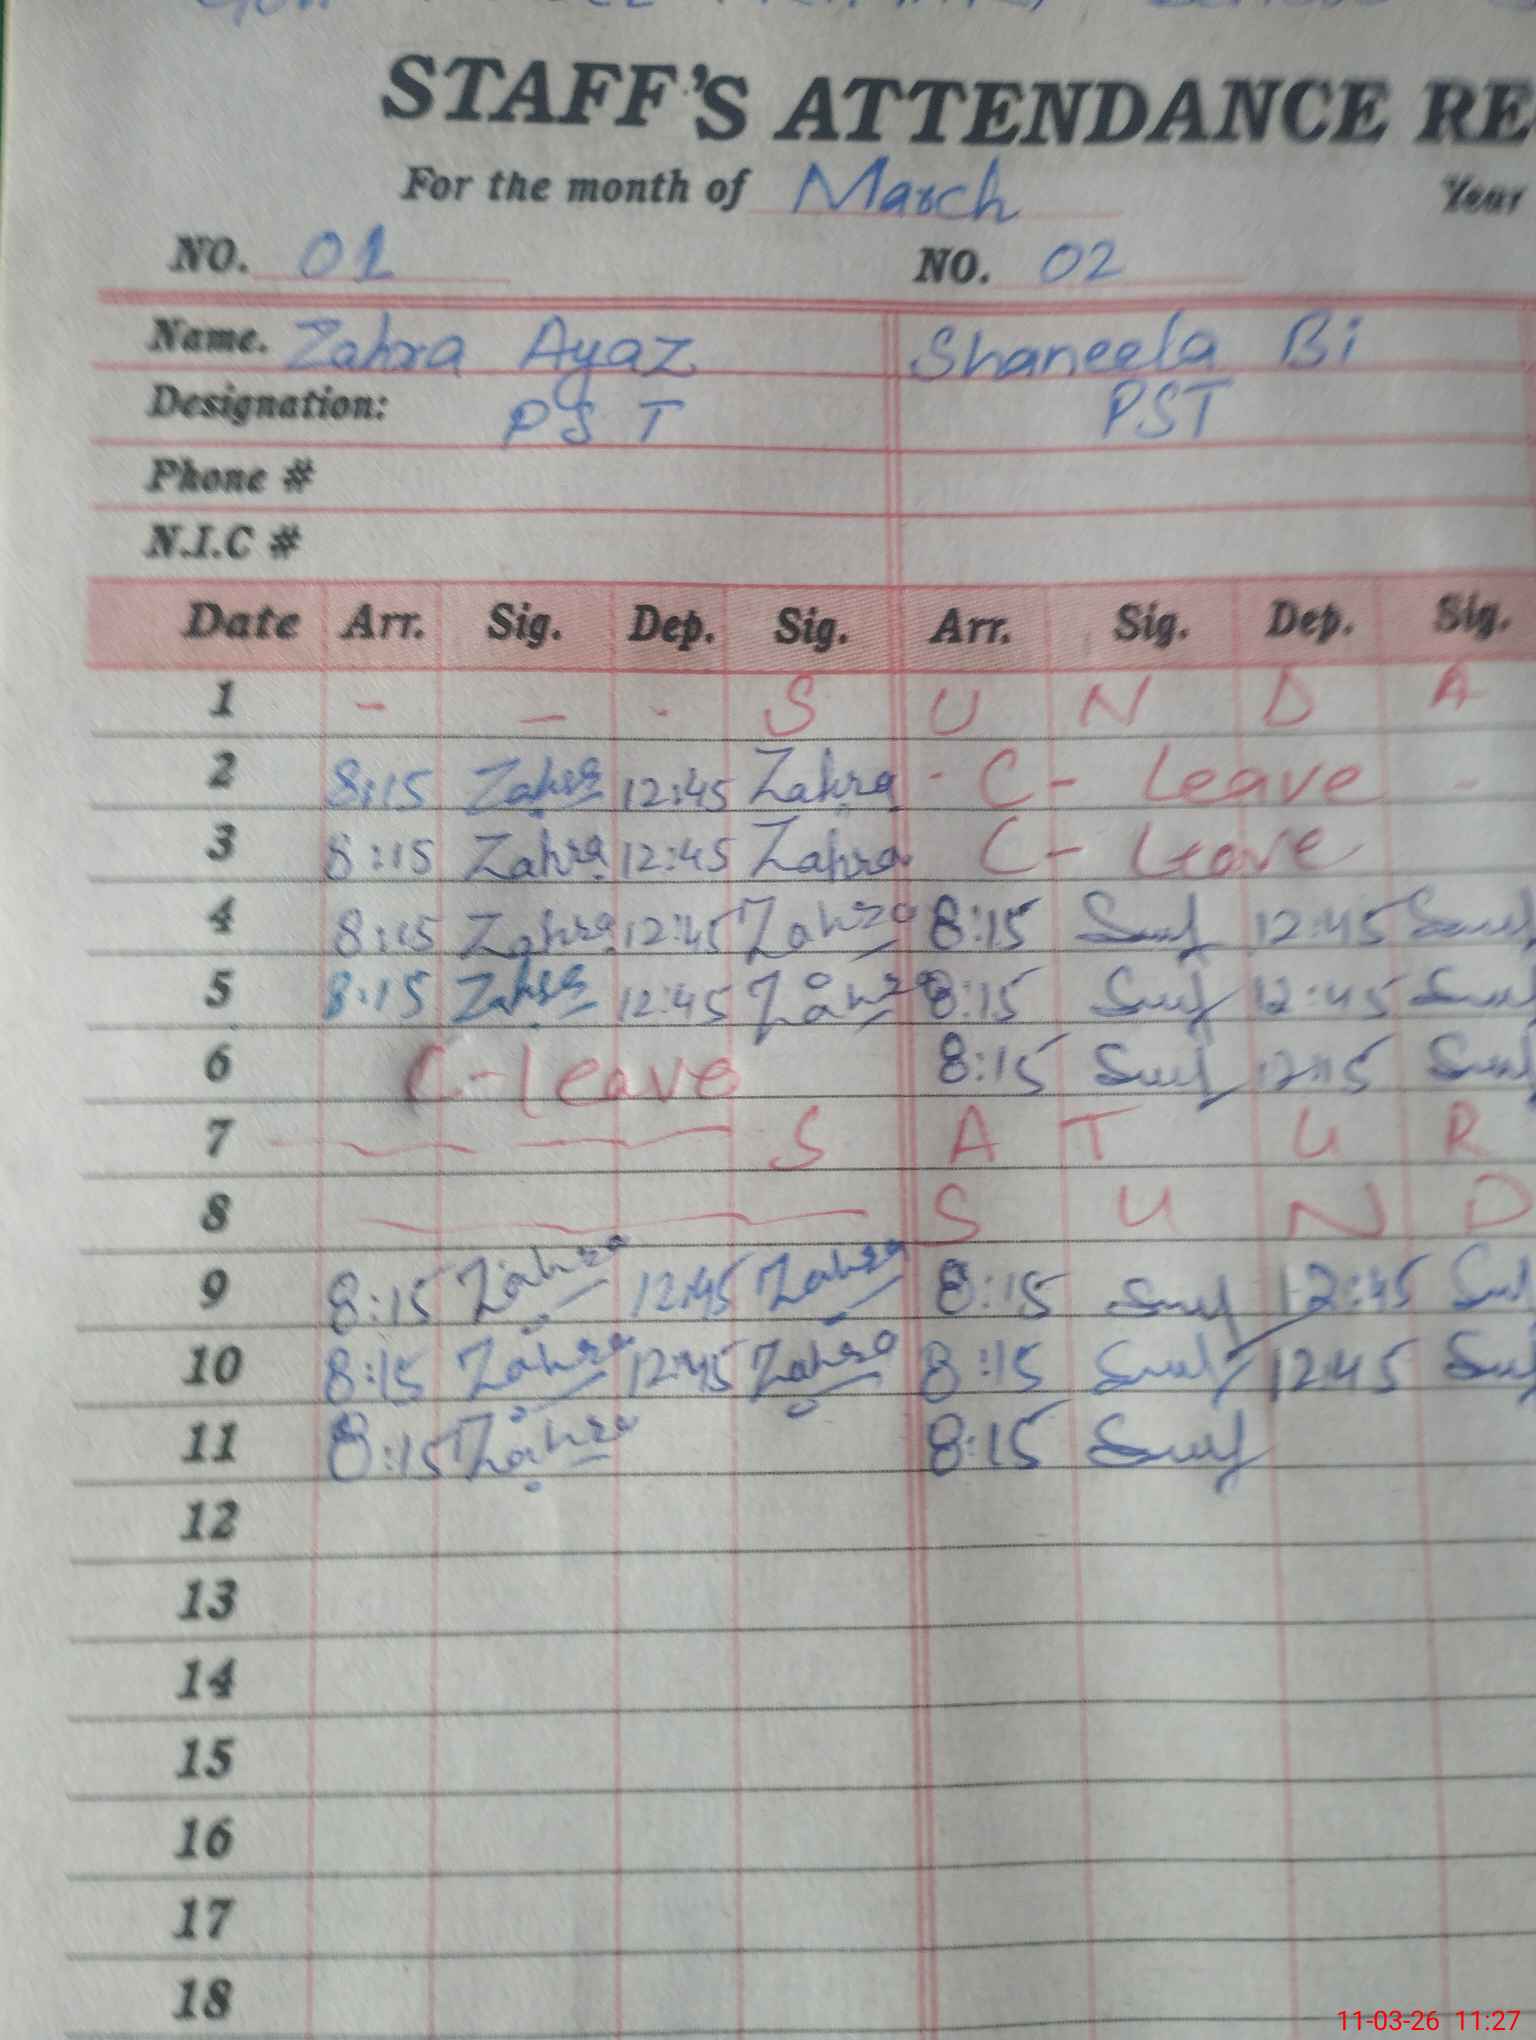 STAFF'S ATTENDANCE RE
For the month of March Year
NO. 01 NO. 02
Name. Zahra Ayaz Shaneela Bi
Designation: PST PST
Phone #
N.I.C #
Date Arr. Sig. Dep. Sig. Arr. Sig. Dep. Sig.
1 - - - S U N D A
2 8:15 Zahra 12:45 Zahra - C - Leave -
3 8:15 Zahra 12:45 Zahra C - Leave
4 8:15 Zahra 12:45 Zahra 8:15 12:45
5 8:15 Zahra 12:45 Zahra 8:15 12:45
6 C-Leave 8:15
7 S A T U R
8 S U N D
9 8:15 Zahra 12:45 Zahra 8:15 12:45
10 8:15 Zahra 12:45 Zahra 8:15 12:45
11 8:15 Zahra 8:15
12
13
14
15
16
17
18
11-03-26 11:27